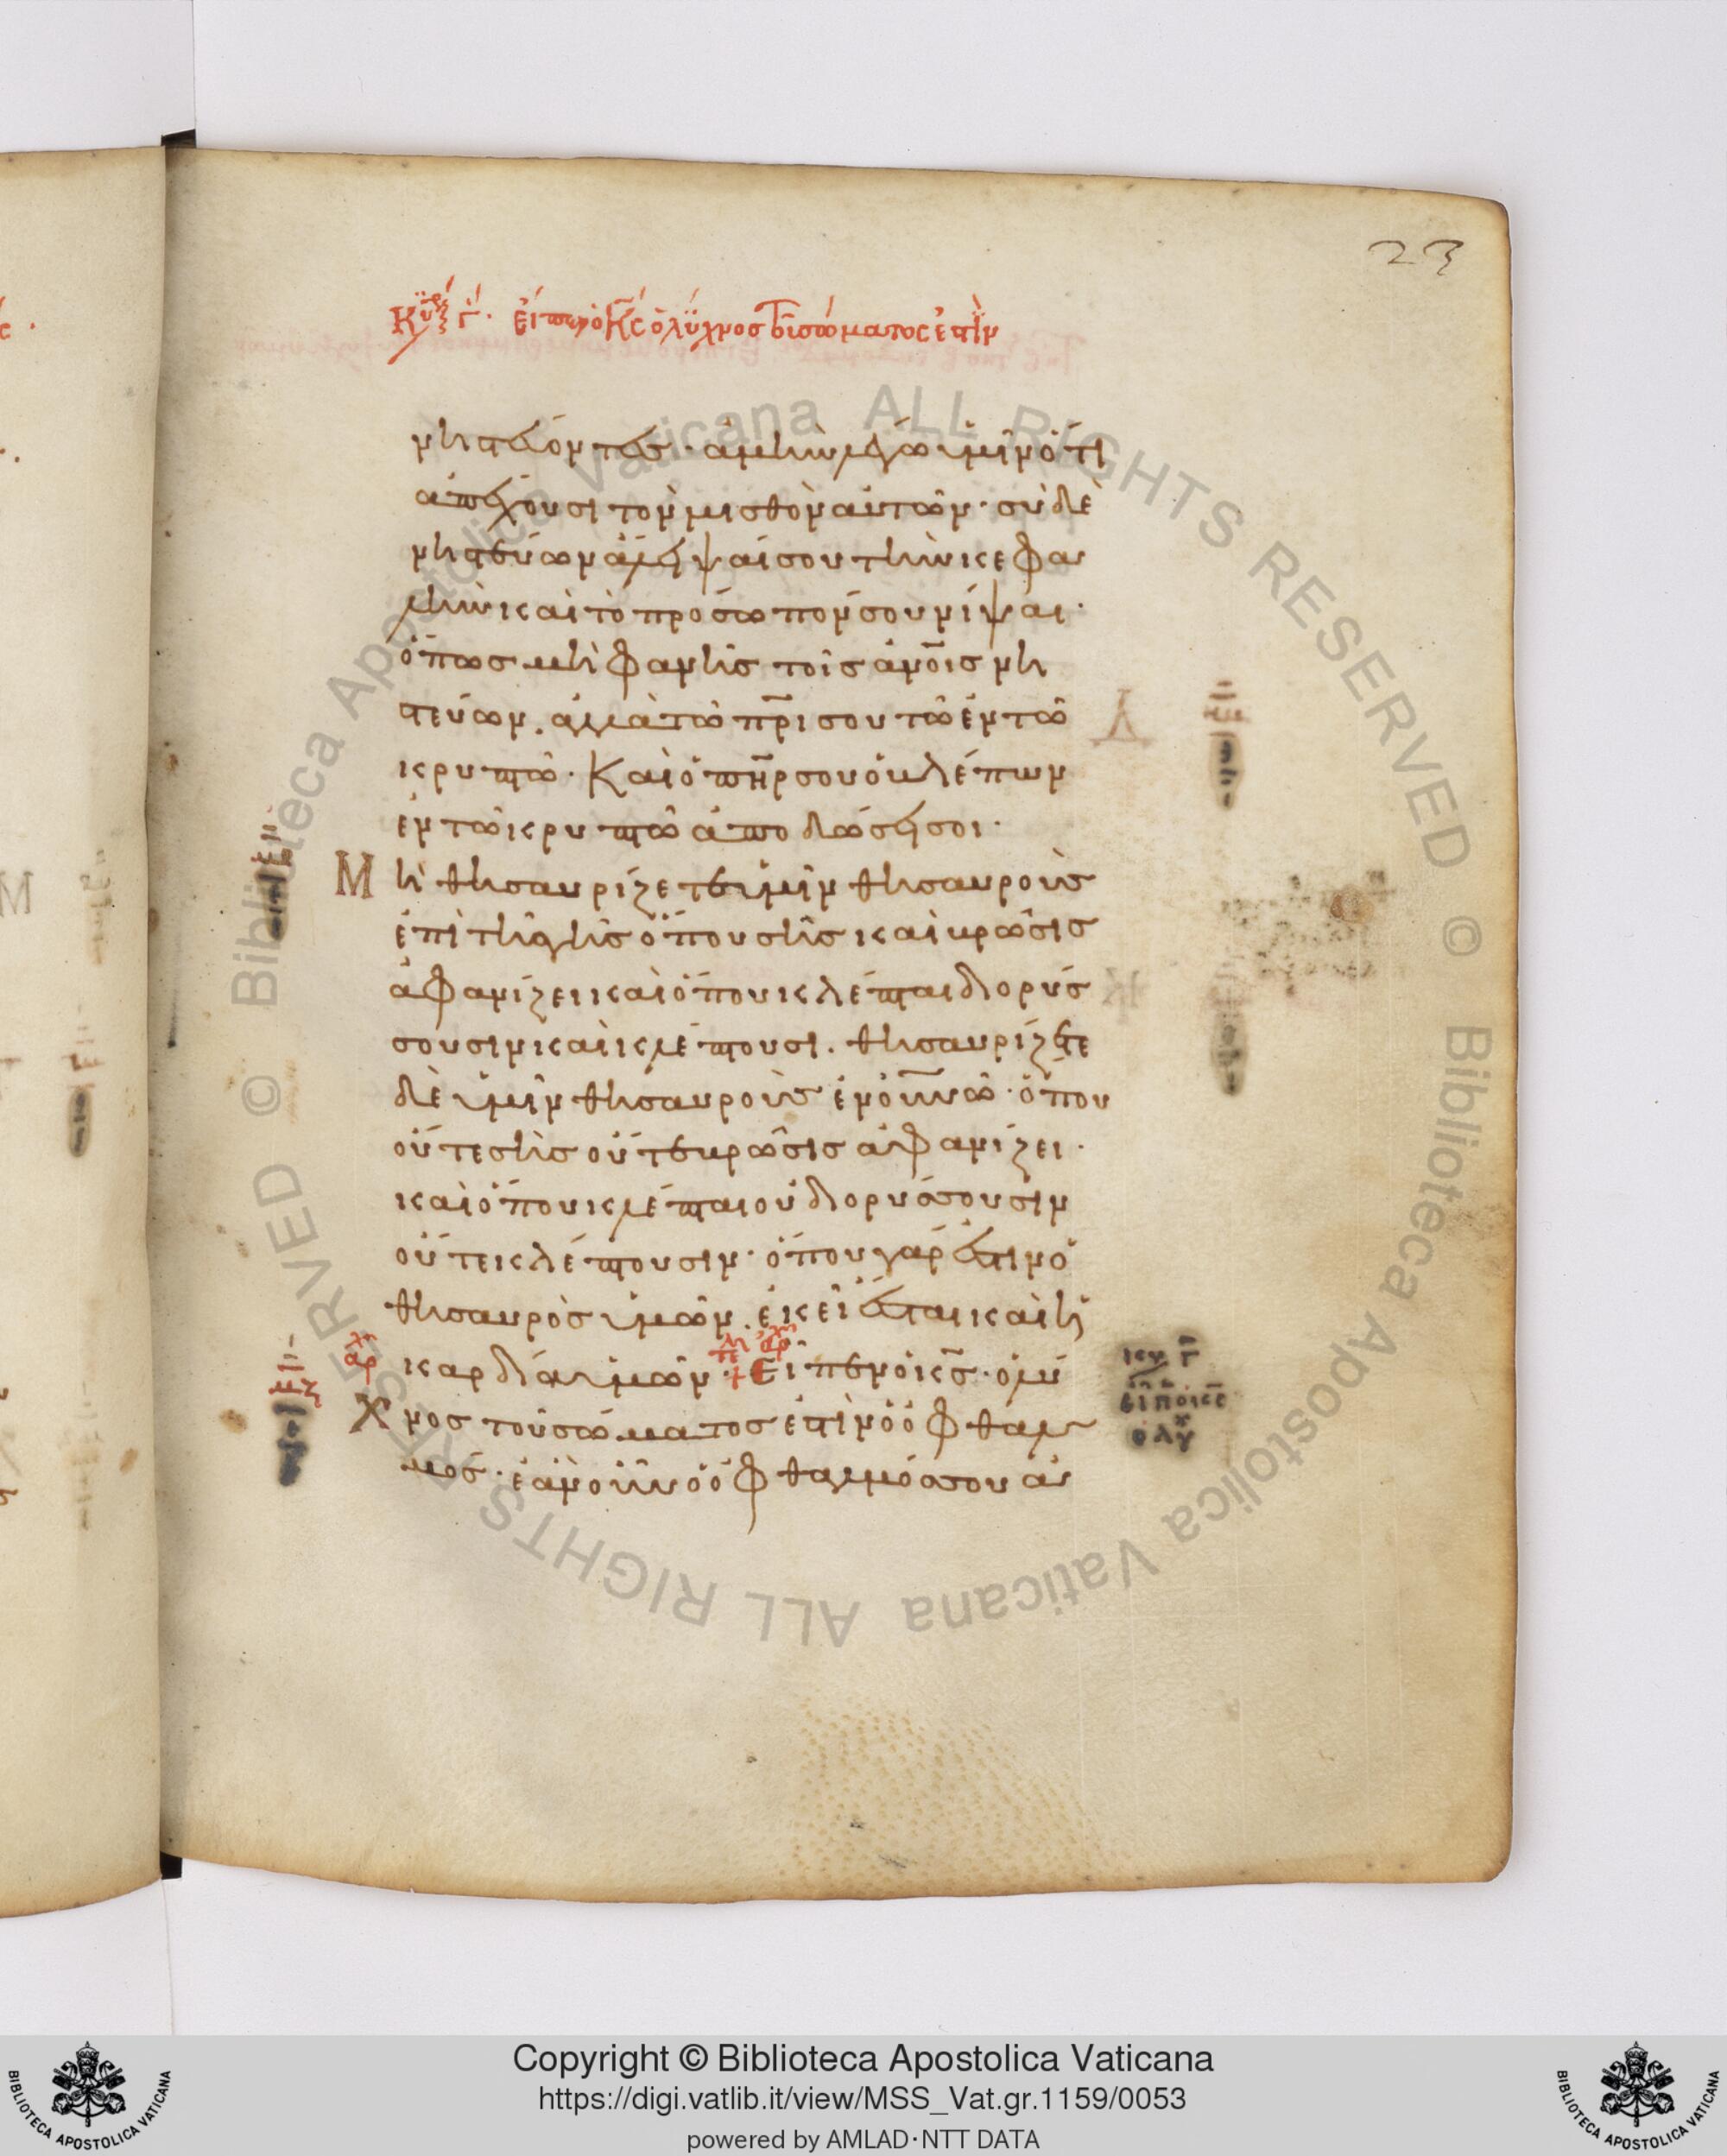 23
Κυ γ. εἶπεν ὁ κς ὁ λύχνος τοῦ σώματος ἐστὶν
νηστεύοντες· ἀμὴν λέγω ὑμῖν ὅτι
ἀπέχουσι τὸν μισθὸν αὐτῶν· σὺ δὲ
νηστεύων ἄλειψαί σου τὴν κεφα
λὴν καὶ τὸ πρόσωπόν σου νίψαι·
ὅπως μὴ φανῆς τοῖς ἀνοις νη
στεύων. ἀλλὰ τῶ πρι σου τῶ ἐν τῶ
κρυπτῶ· Καὶ ὁ πηρ σου ὁ βλέπων
ἐν τῶ κρυπτῶ ἀποδώσει σοι·
Μὴ θησαυρίζετε ὑμῖν θησαυροὺς
ἐπὶ τῆς γῆς ὅπου σὴς καὶ βρῶσις
ἀφανίζει καὶ ὅπου κλέπται διορύσ
σουσιν καὶ κλέπτουσι. θησαυρίζετε
δὲ ὑμῖν θησαυροὺς ἐν οὐνῶ· ὅπου
οὔτε σὴς οὔτε βρῶσις ἀφανίζει·
καὶ ὅπου κλέπται οὐ διορύσσουσιν
οὔτε κλέπτουσιν· ὅπου γάρ ἐστιν ὁ
θησαυρὸς ὑμῶν. ἐκεῖ ἔσται καὶ ἡ
καρδία ὑμῶν· Εἶπεν ὁ κς· ὁ λύ
χνος τοῦ σώματος ἐστὶν ὁ ὀφθαλ
μός· ἐὰν οὖν ὁ ὀφθαλμός σου ἁ
αρχ
τε αρχ
κυ γ
εἶπ ὁ κς
ὁ λυχ
Copyright © Biblioteca Apostolica Vaticana
https://digi.vatlib.it/view/MSS_Vat.gr.1159/0053
powered by AMLAD·NTT DATA
BIBLIOTECA APOSTOLICA VATICANA
BIBLIOTECA APOSTOLICA VATICANA
© Biblioteca Apostolica Vaticana ALL RIGHTS RESERVED
© Biblioteca Apostolica Vaticana ALL RIGHTS RESERVED